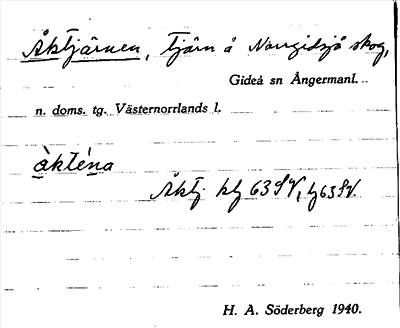 Åktjärnen, tjärn å Norrgidsjö skog,
Gideå sn Ångermanl.
n. doms. tg. Västernorrlands l.
àkténa
Åktj. kbl 63 SV, lj 63 SV
H. A. Söderberg 1940.